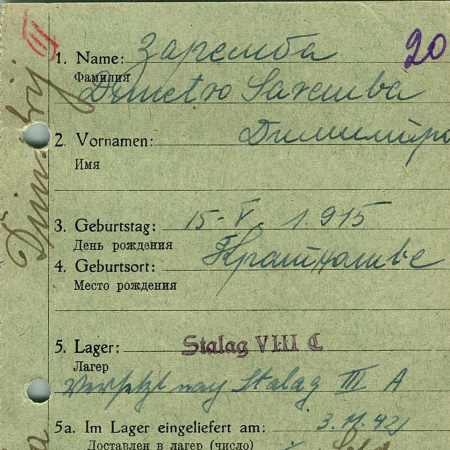 20
III
1. Name: Заремба
Фамилия
Dmetro Saremba
2. Vornamen: Димитро
Имя
3. Geburtstag: 15-V. 1.915
День рождения
4. Geburtsort:
Место рождения
5. Lager: Stalag VIII C
Лагер
Versetzt nach Stalag III A
5a. Im Lager eingeliefert am: 3.11.42
Доставлен в лагер (число)